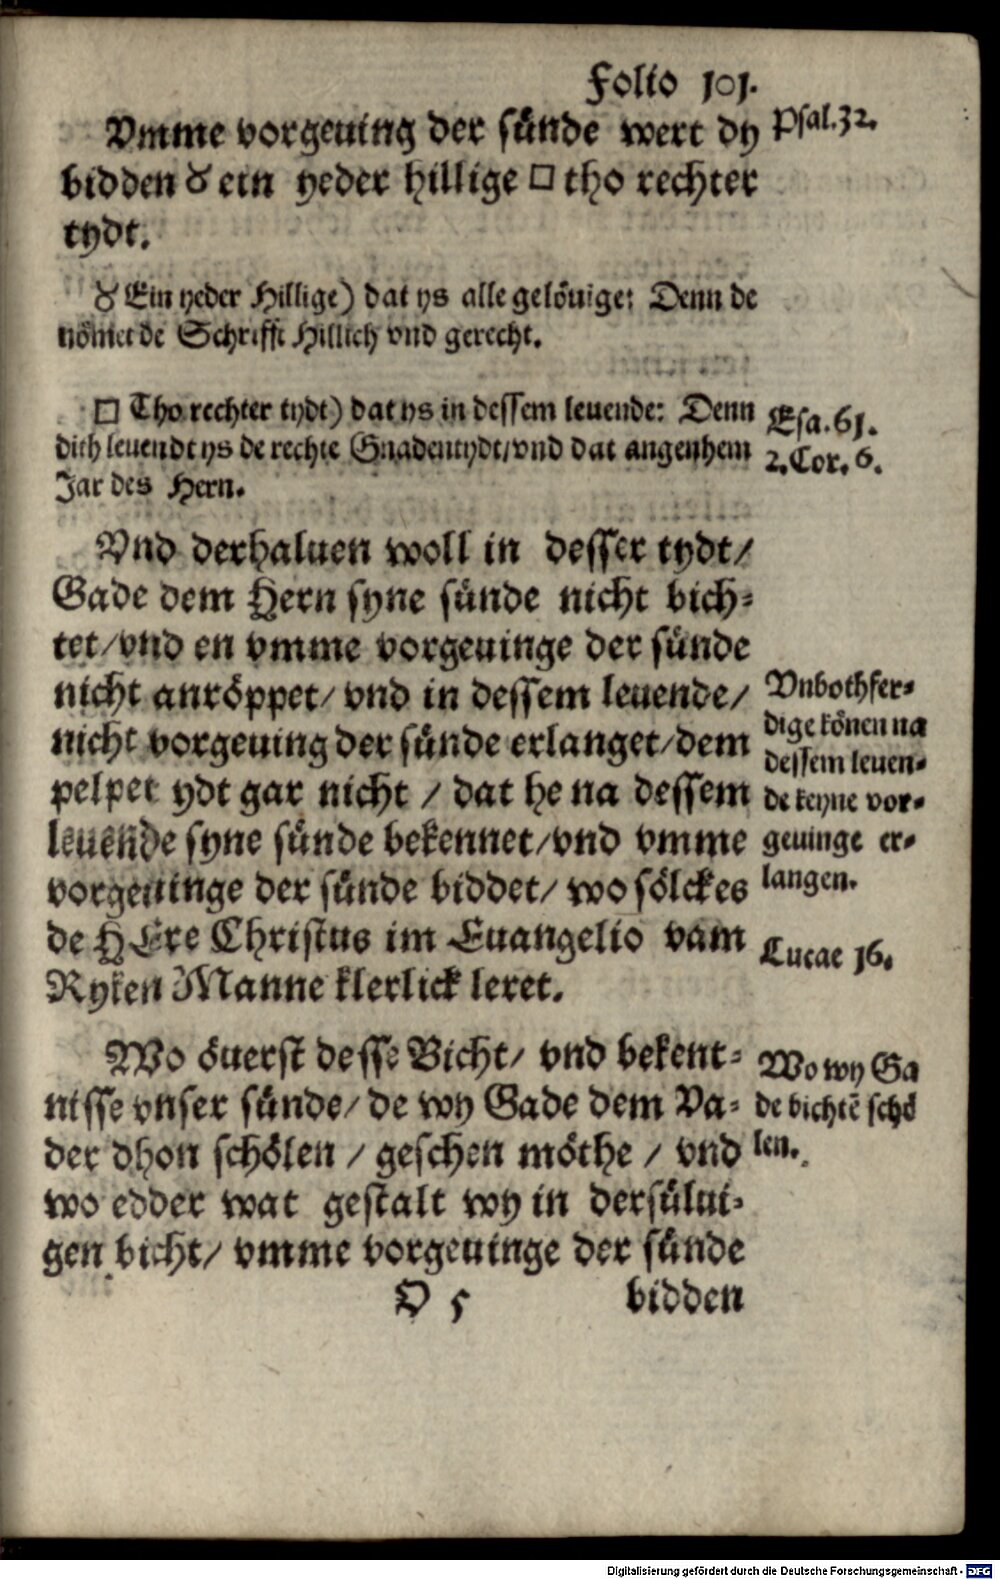 Folio 101.
Vmme vorgeuing der sünde wert dy
Psal.32.
bidden ४ ein yeder hillige □ tho rechter
tydt.
४ Ein yeder Hillige) dat ys alle gelöuige: Denn de
nömet de Schrifft Hillich vnd gerecht.
□ Tho rechter tydt) dat ys in dessem leuende: Denn
Esa.61.
dith leuendt ys de rechte Gnadentydt/vnd dat angenhem
2.Cor.6.
Jar des Hern.
Vnd derhaluen woll in desser tydt/
Gade dem Hern syne sünde nicht bich-
tet/vnd en vmme vorgeuinge der sünde
nicht anröppet/ vnd in dessem leuende/
nicht vorgeuing der sünde erlanget/dem
pelpet ydt gar nicht / dat he na dessem
leuende syne sünde bekennet/vnd vmme
vorgeuinge der sünde biddet/ wo sölckes
de HEre Christus im Euangelio vam
Ryken Manne klerlick leret.
Vnbothfer-
dige könen na
dessem leuen-
de keyne vor-
geuinge er-
langen.
Lucae 16.
Wo öuerst desse Bicht/ vnd bekent-
nisse vnser sünde/ de wy Gade dem Va-
der dhon schölen / geschen möthe / vnd
wo edder wat gestalt wy in dersülui-
gen bicht/ vmme vorgeuinge der sünde
Wo wy Ga
de bichtē schö
len.
O 5 bidden
Digitalisierung gefördert durch die Deutsche Forschungsgemeinschaft - DFG